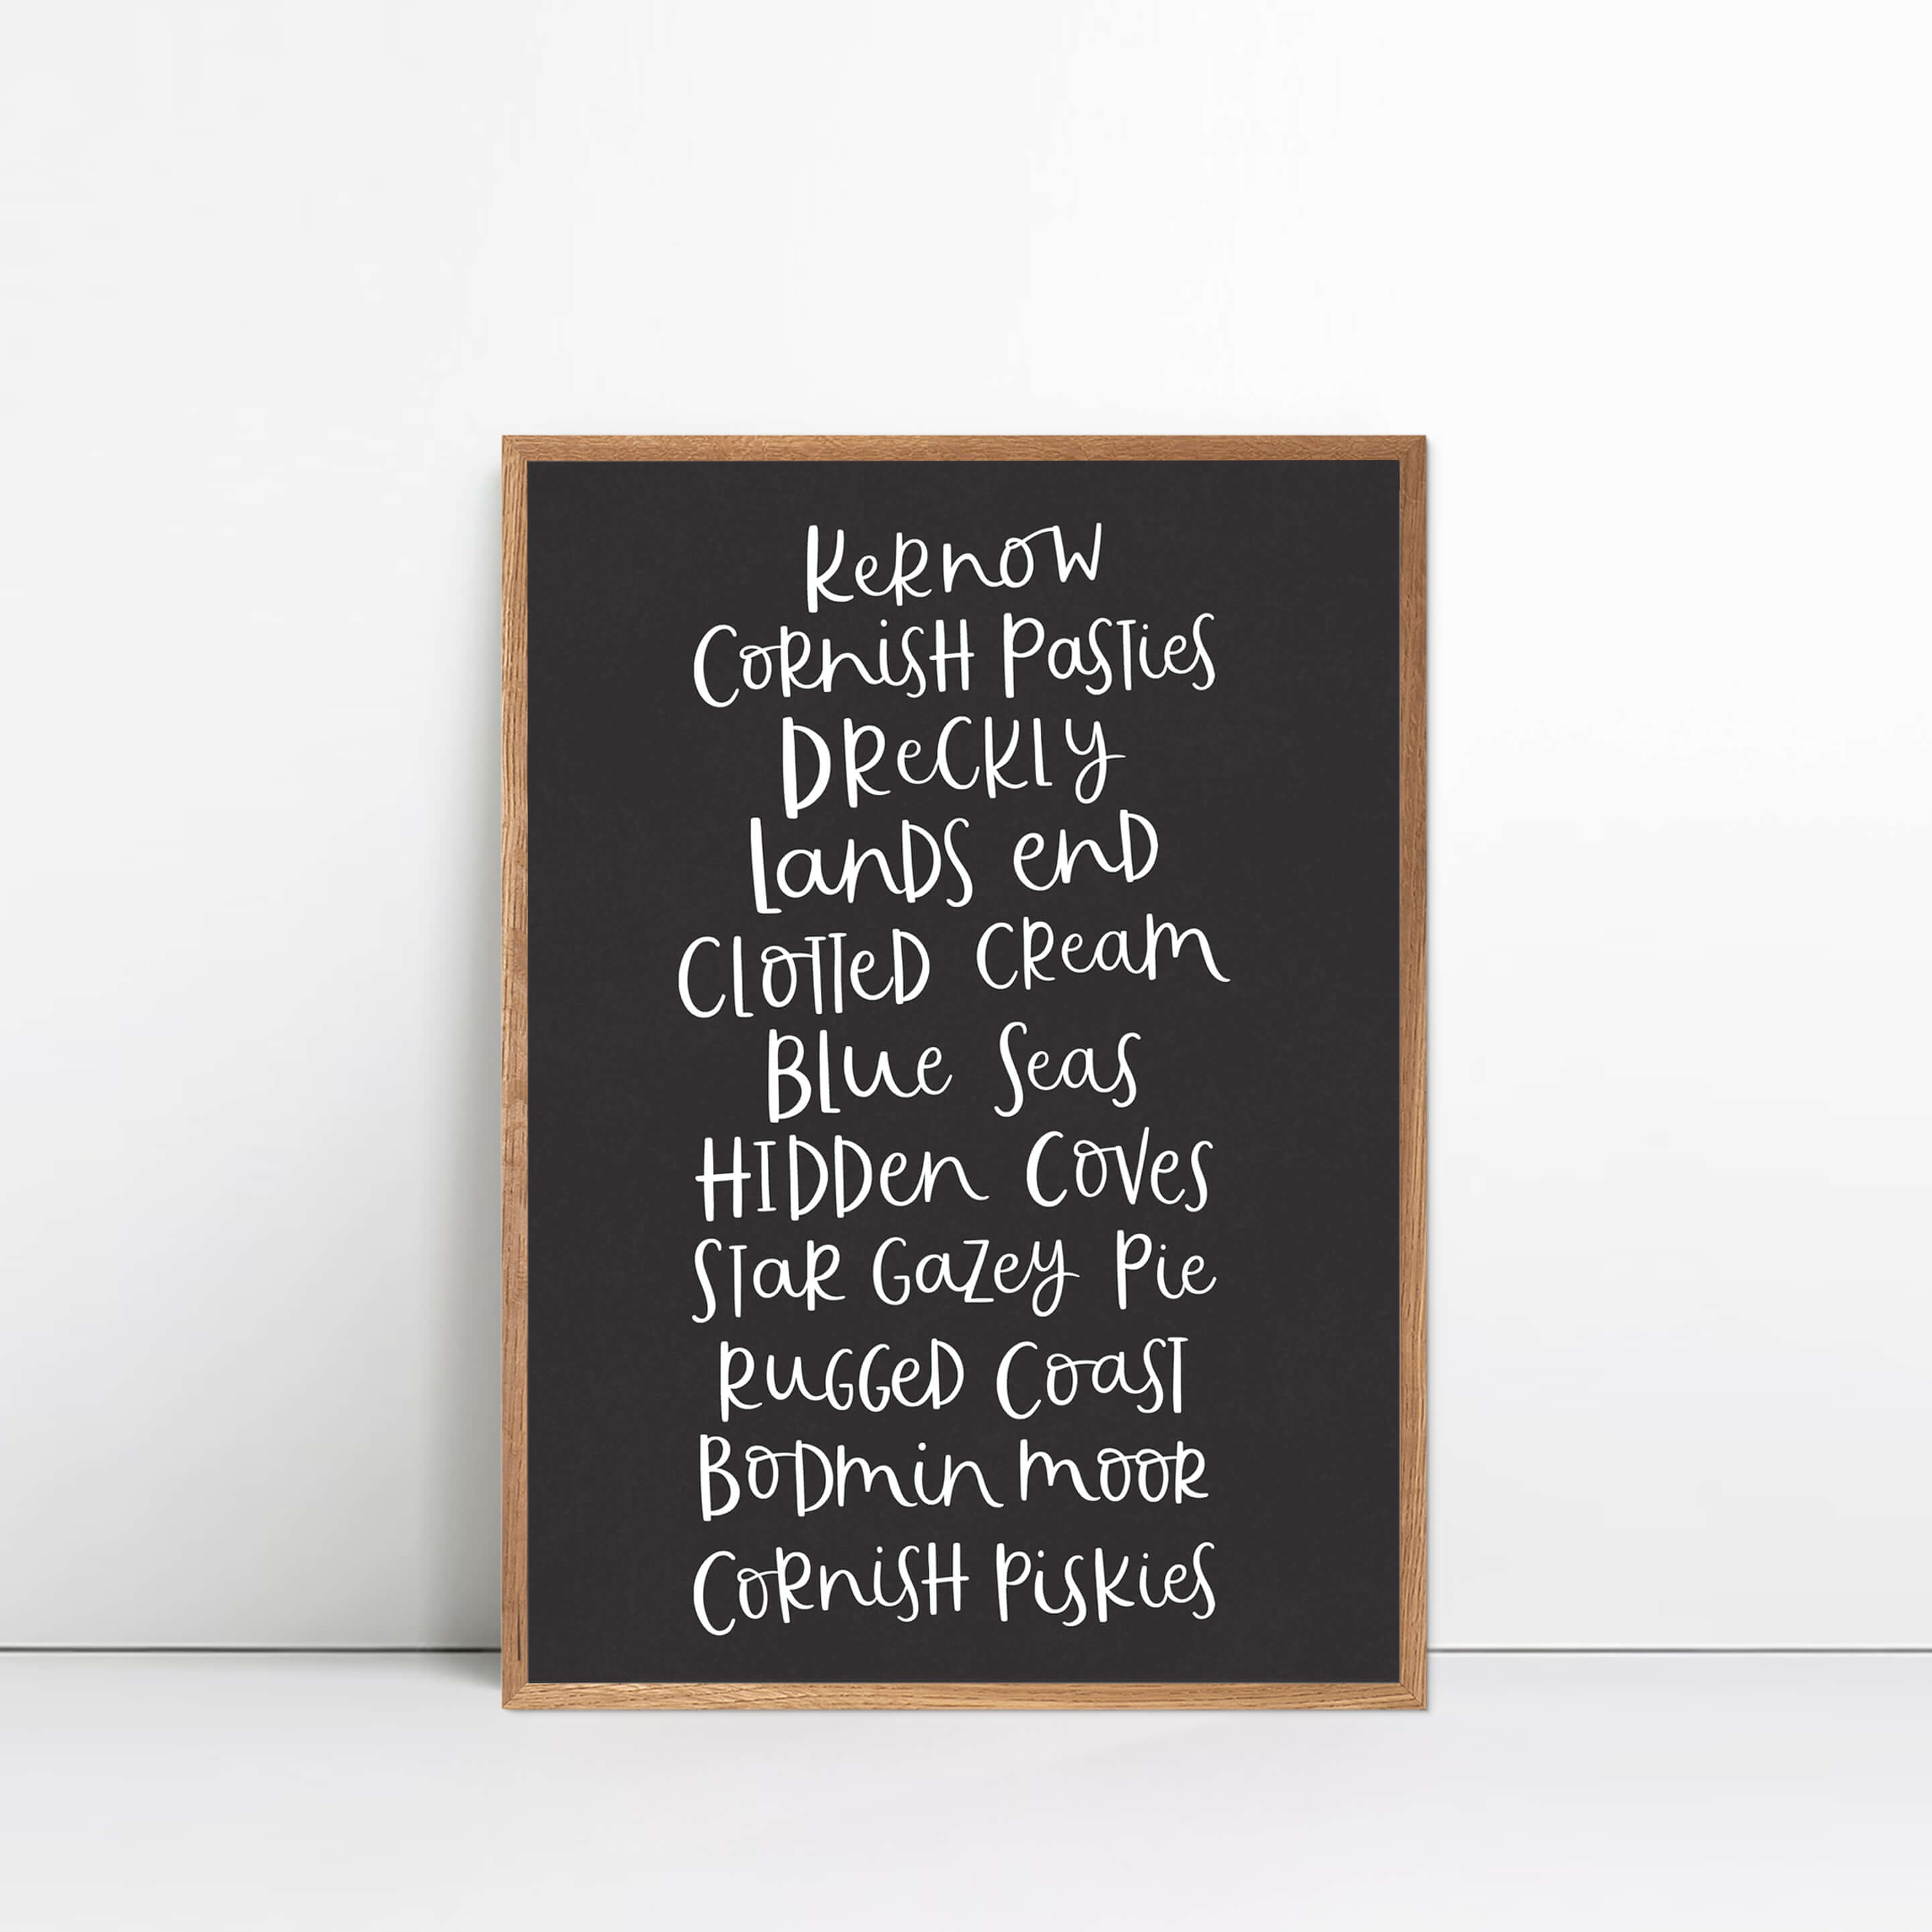 Kernow
Cornish Pasties
Dreckly
Lands End
Clotted Cream
Blue Seas
Hidden Coves
Star Gazey Pie
Rugged Coast
Bodmin Moor
Cornish Piskies